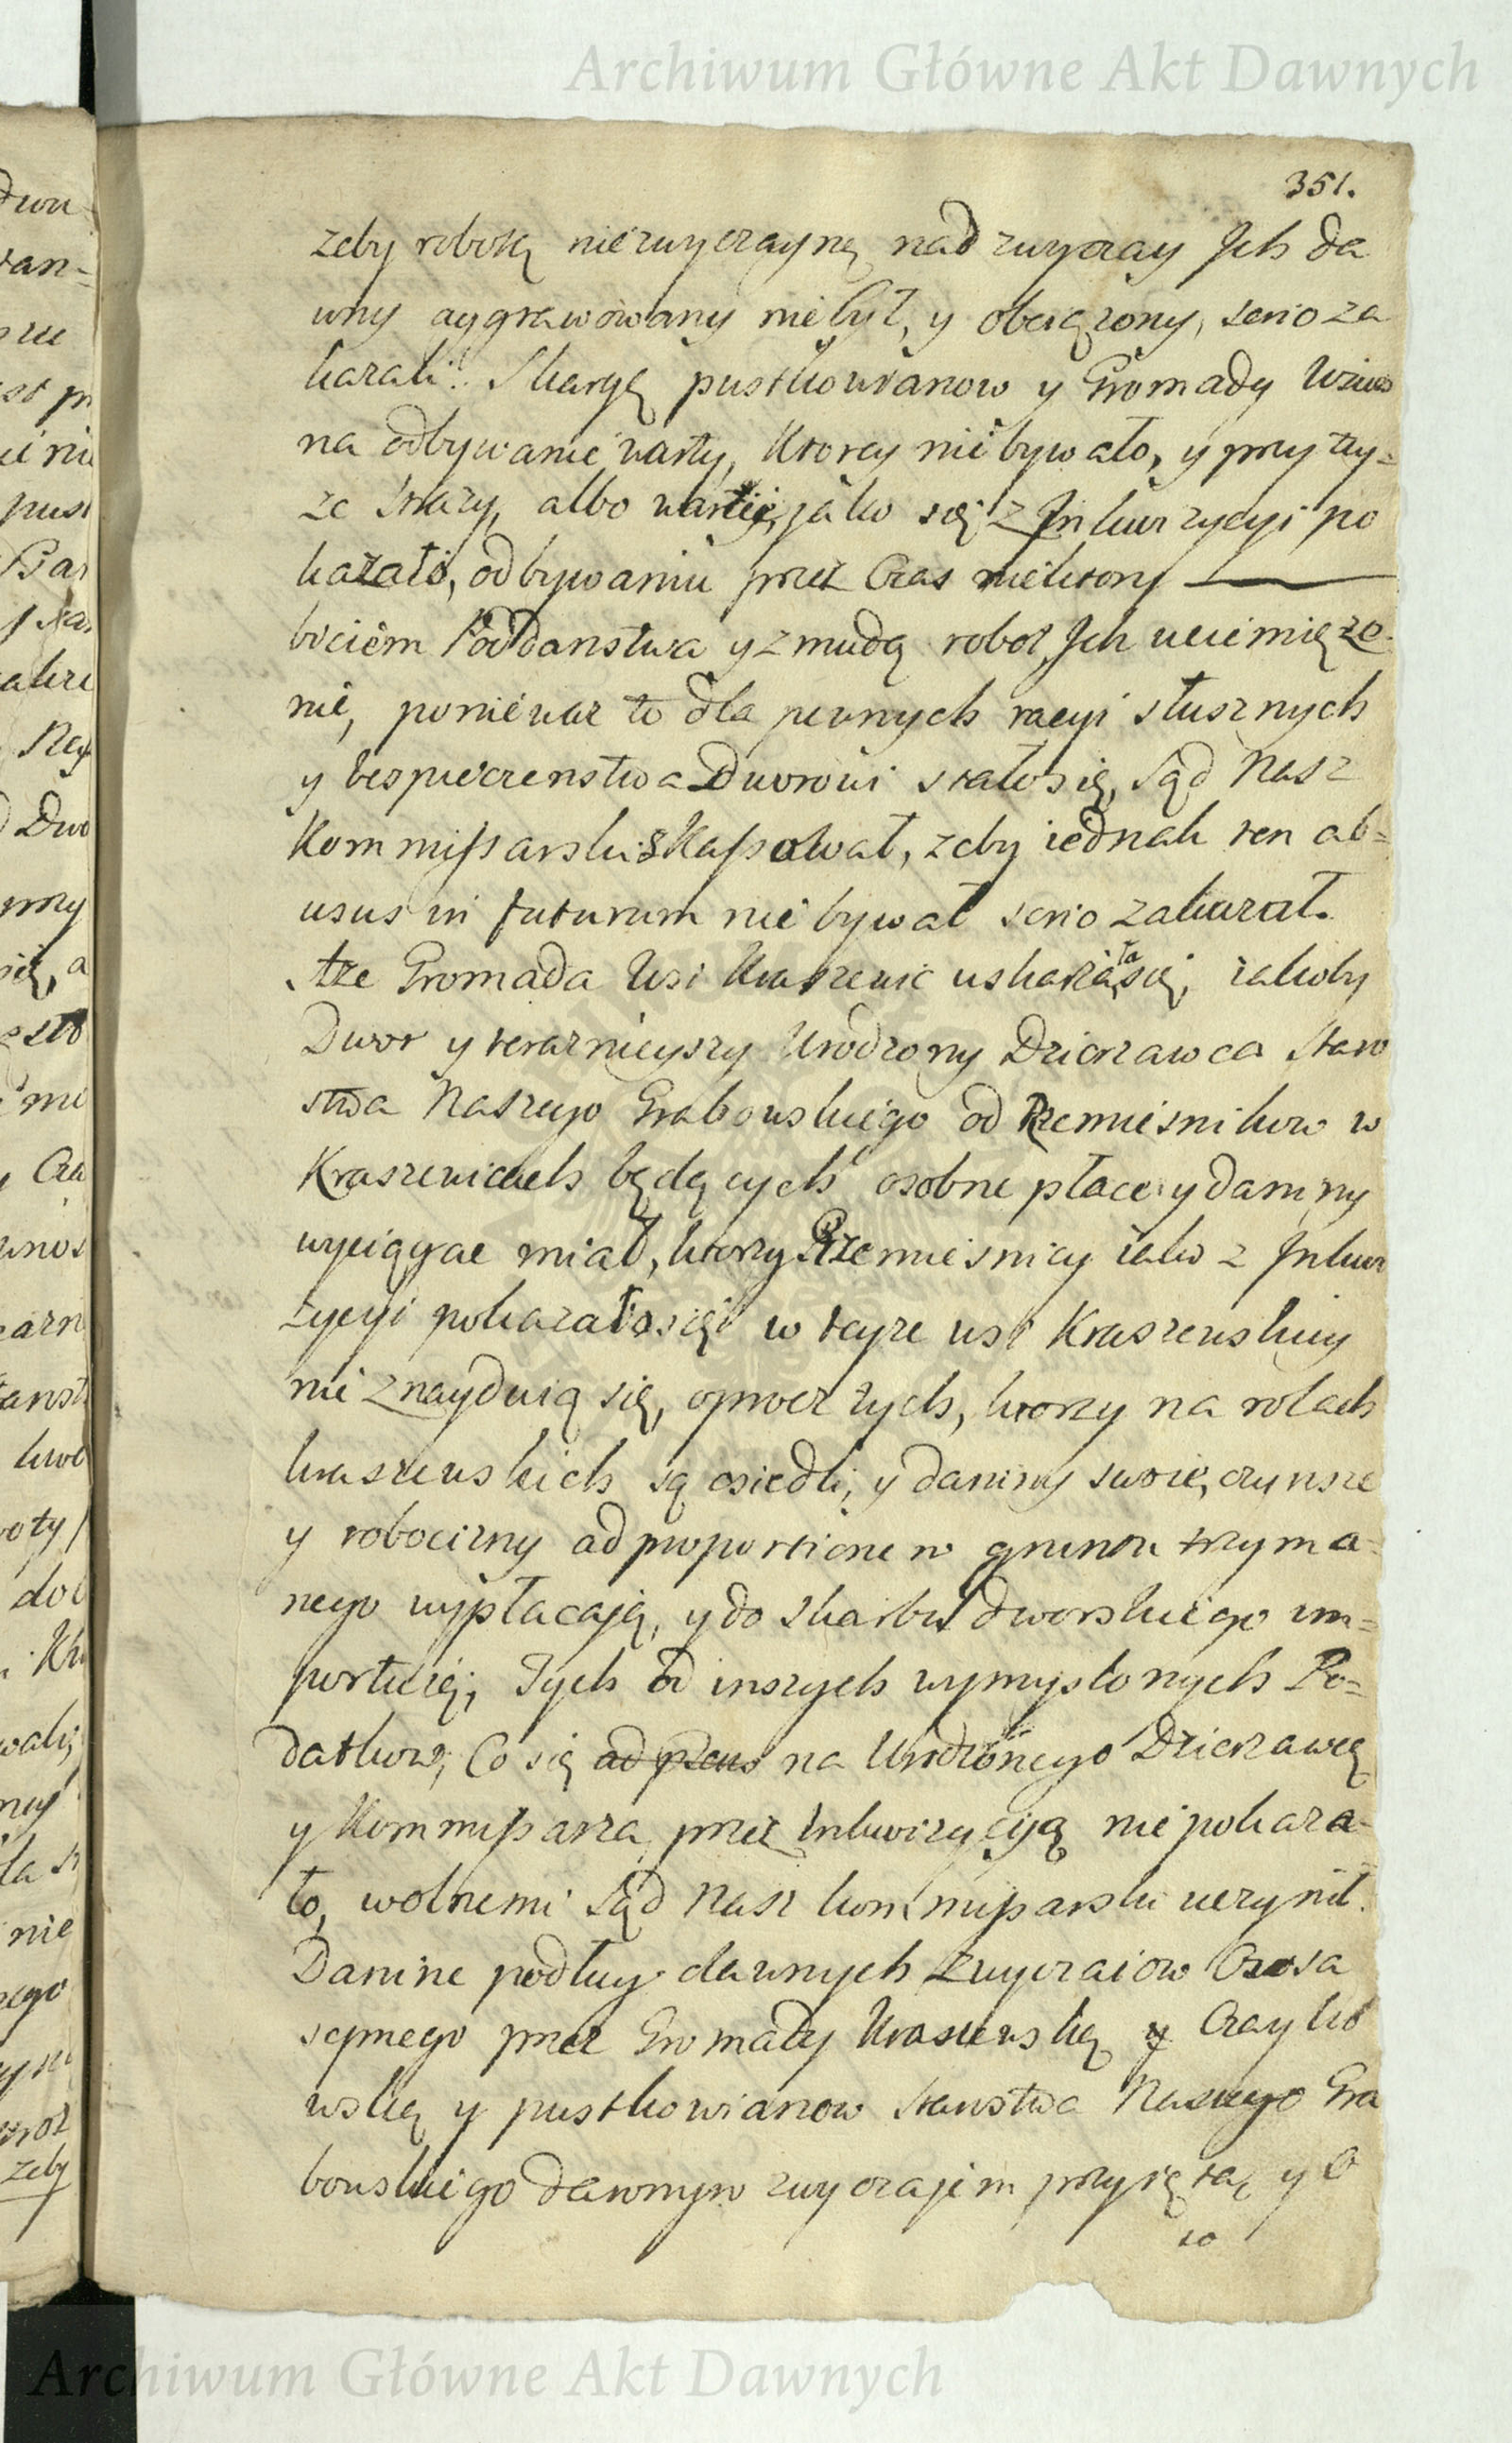 Archiwum Główne Akt Dawnych
351.
zeby robotą niezwyczayną nad zwyczay Jch da
wny aggrawowany niebył, y obciązony, serio za
kazali. Skargę pustkowianow y Gromady
na odbywanie warty, ktorey niebywało, y przy tey=
ze strazy, albo wartie, jako się z Jnkwizycyi po
kazało, odbywaniu przez Czas niektory
biciem Poddanstwa y zmudą robot Jch uciemięze-
nie, poniewaz to dla pewnych racyi słusznych
y bespieczenstwa Dworowi stało się, Sąd Nasz
Kommissarski skassował, zeby iednak ten ab=
usus in futurum nie bywał serio zakazał.
tze Gromada Wsi Kraszewic uskarzała się, iakoby
Dwor y teraznieyszy Urodzony Dzierzawca Staro
stwa Naszego Grabowskiego od Rzemiesnikow w
Kraszewicach będących osobne płace y daniny
wyciągac miał, ktorzy Rzemiesnicy iako z Jnkwi
zycyi pokazało się w teyze wsi Kraszewskiey
nie znayduią się, oprocz tych, ktorzy na rolach
kraszewskich są osiedli, y daniny swoie, czynsze
y robocizny ad proportionem gruntu trzyma=
nego wypłacają, y do skarbu dworskiego im=
portuią; Tych od inszych wymyslonych Po=
datkow, Co się na Urodzonego Dzierzawcę
y Kommissarza przez Inkwizycyią nie pokaza-
ło, wolnemi Sąd Nasz kommissarski uczynił.
Danine podług dawnych zwyczaiow Osesa
sepnego przez Gromady Kraszewską y Czayko
wską y pustkowianow Starostwa Naszego Gra
bowskiego dawnym zwyczajem przyiętą y O
to
Archiwum Główne Akt Dawnych